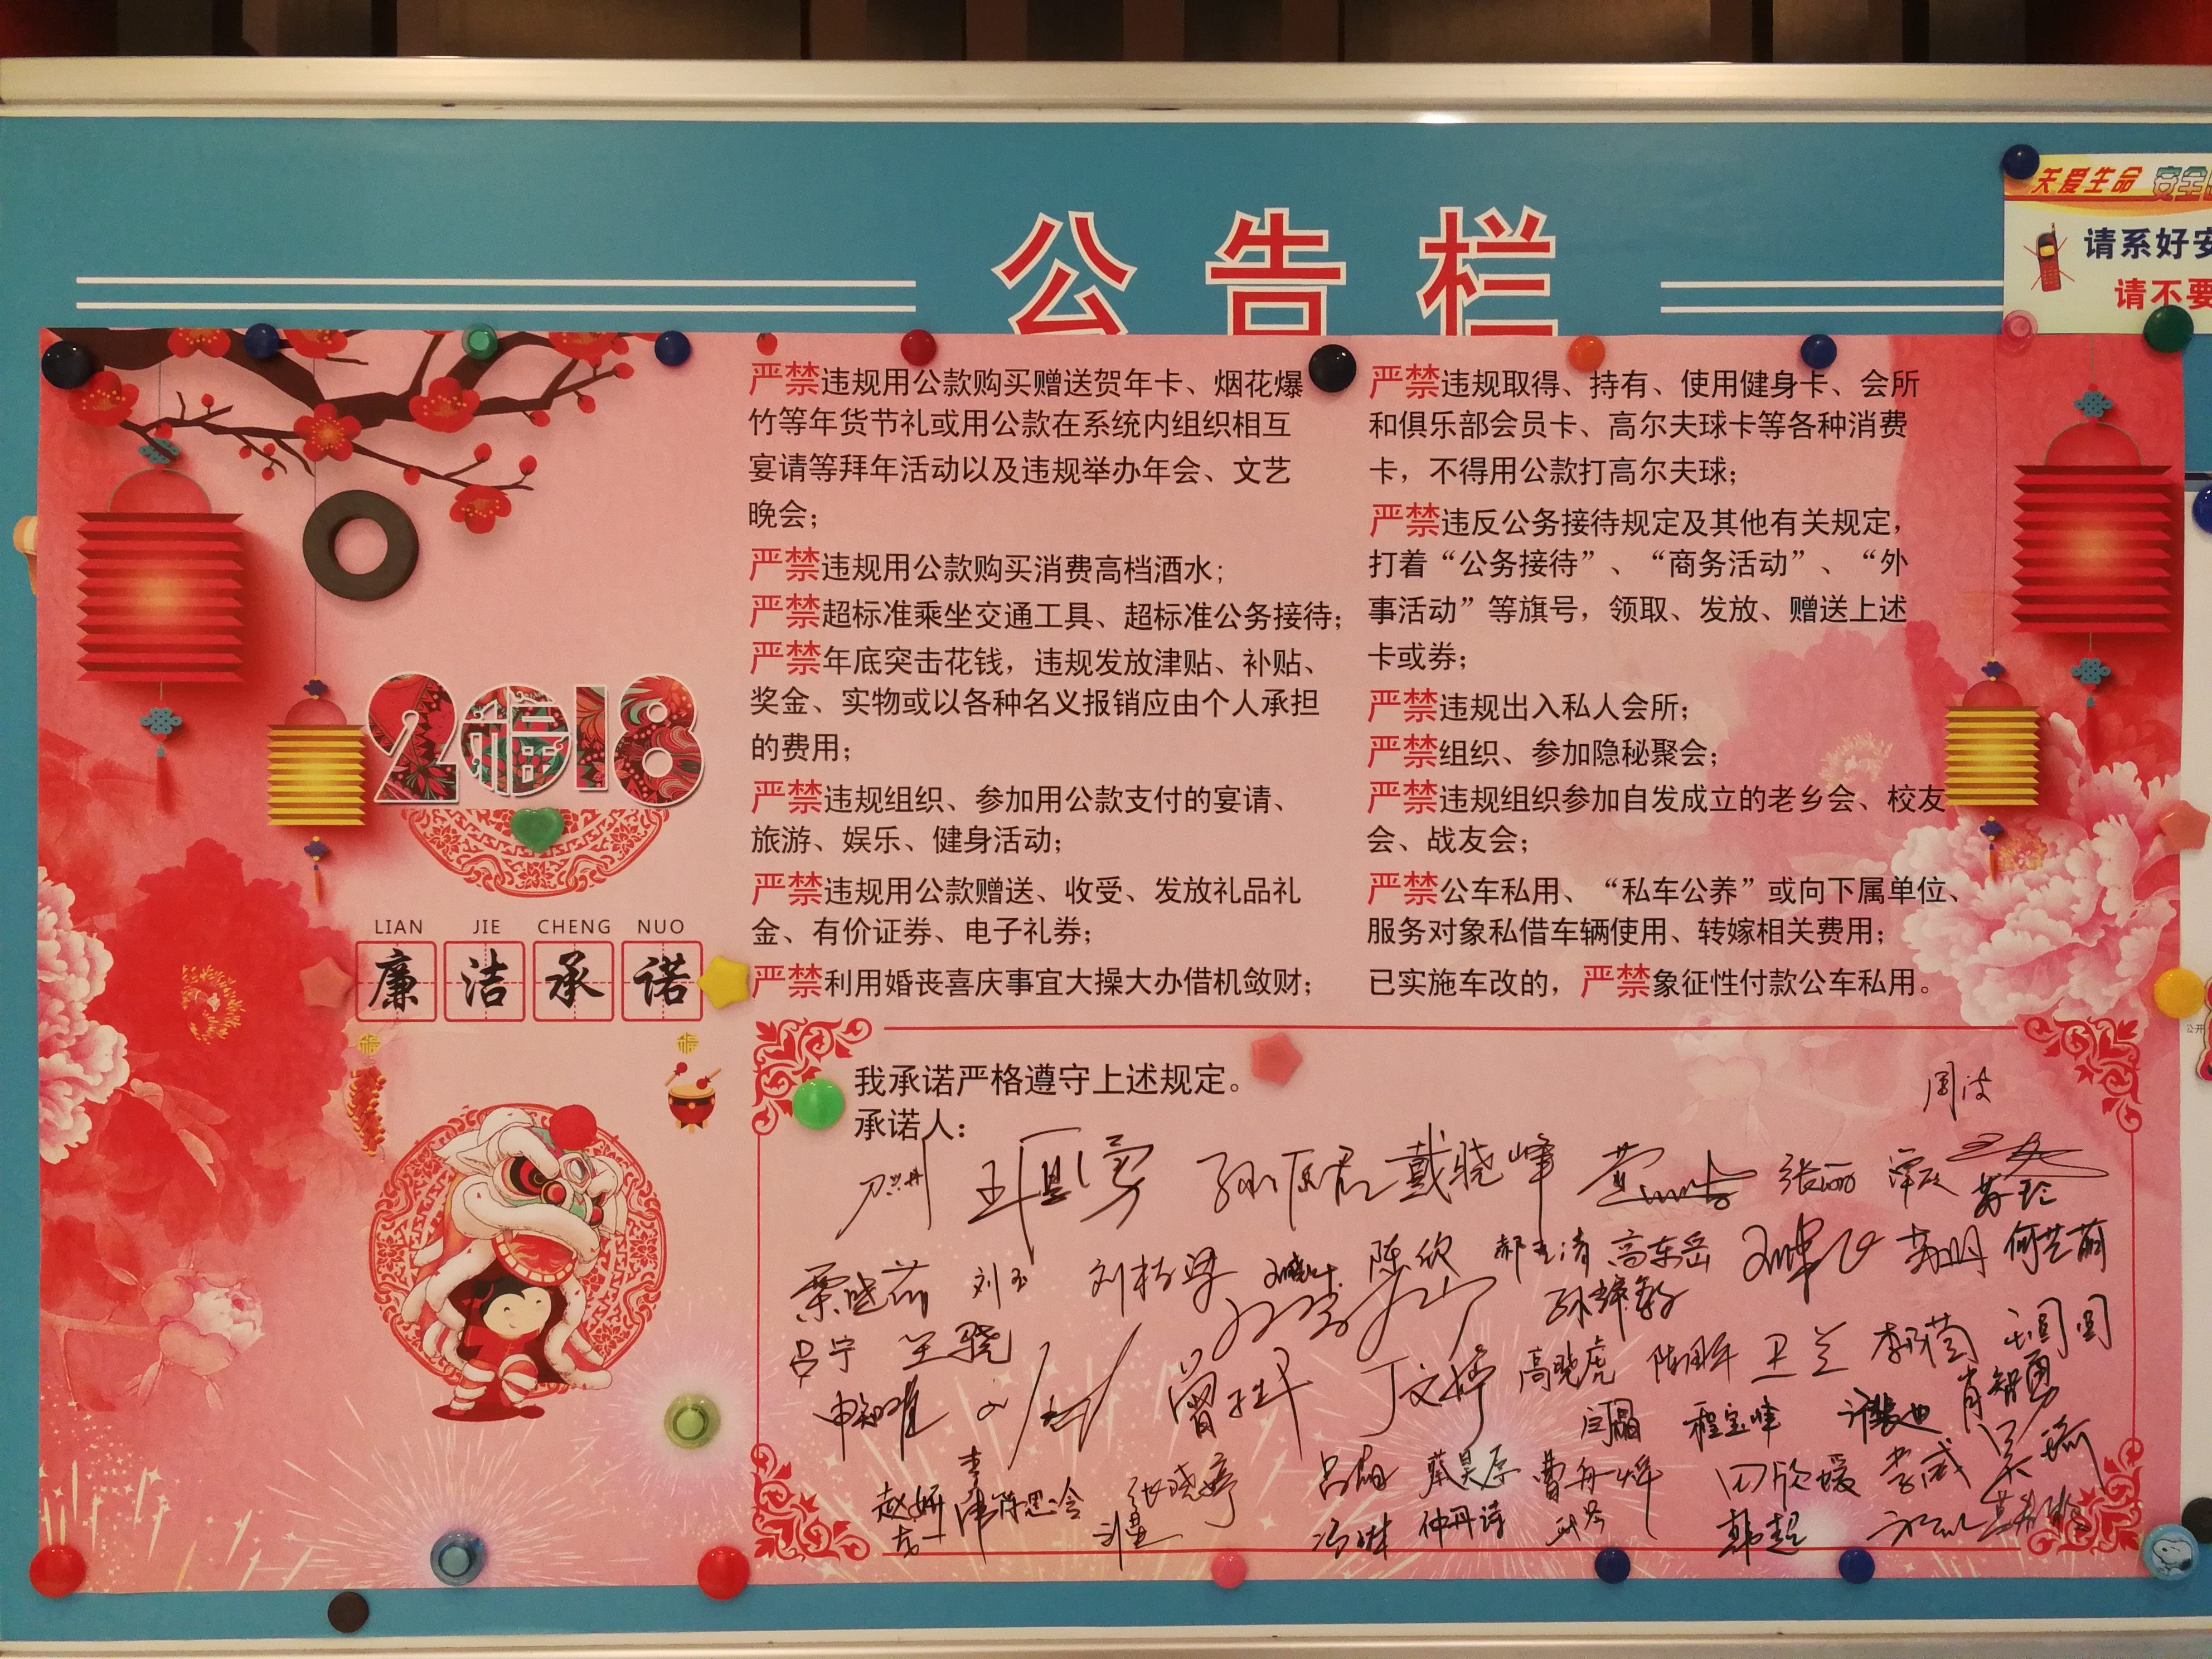 公告栏
关爱生命 安全
请系好安
请不要
严禁违规用公款购买赠送贺年卡、烟花爆
竹等年货节礼或用公款在系统内组织相互
宴请等拜年活动以及违规举办年会、文艺
晚会；
严禁违规用公款购买消费高档酒水；
严禁超标准乘坐交通工具、超标准公务接待；
严禁年底突击花钱，违规发放津贴、补贴、
奖金、实物或以各种名义报销应由个人承担
的费用；
严禁违规组织、参加用公款支付的宴请、
旅游、娱乐、健身活动；
严禁违规用公款赠送、收受、发放礼品礼
金、有价证券、电子礼券；
严禁利用婚丧喜庆事宜大操大办借机敛财；
严禁违规取得、持有、使用健身卡、会所
和俱乐部会员卡、高尔夫球卡等各种消费
卡，不得用公款打高尔夫球；
严禁违反公务接待规定及其他有关规定，
打着“公务接待”、“商务活动”、“外
事活动”等旗号，领取、发放、赠送上述
卡或券；
严禁违规出入私人会所；
严禁组织、参加隐秘聚会；
严禁违规组织参加自发成立的老乡会、校友
会、战友会；
严禁公车私用、“私车公养”或向下属单位、
服务对象私借车辆使用、转嫁相关费用；
已实施车改的，严禁象征性付款公车私用。
2018
福
LIAN JIE CHENG NUO
廉洁承诺
我承诺严格遵守上述规定。
承诺人：
周波
戴晓峰 张丽
刘玉 陈欣 高东岳
吕宁 王骁
丁文婷 高晓虎 卫兰
闫晶 程宝峰 肖智勇
赵妍 张晓婷 吕晶 蔡昊原 曹舟 田欣媛 李威
仲丹诗 韩超